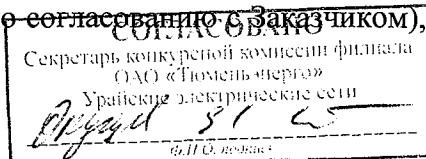 о согласованию с Заказчиком),
СОГЛАСОВАНО
Секретарь конкурсной комиссии филиала
ОАО «Тюменьэнерго»
Урайские электрические сети
Ф.И.О. подпись